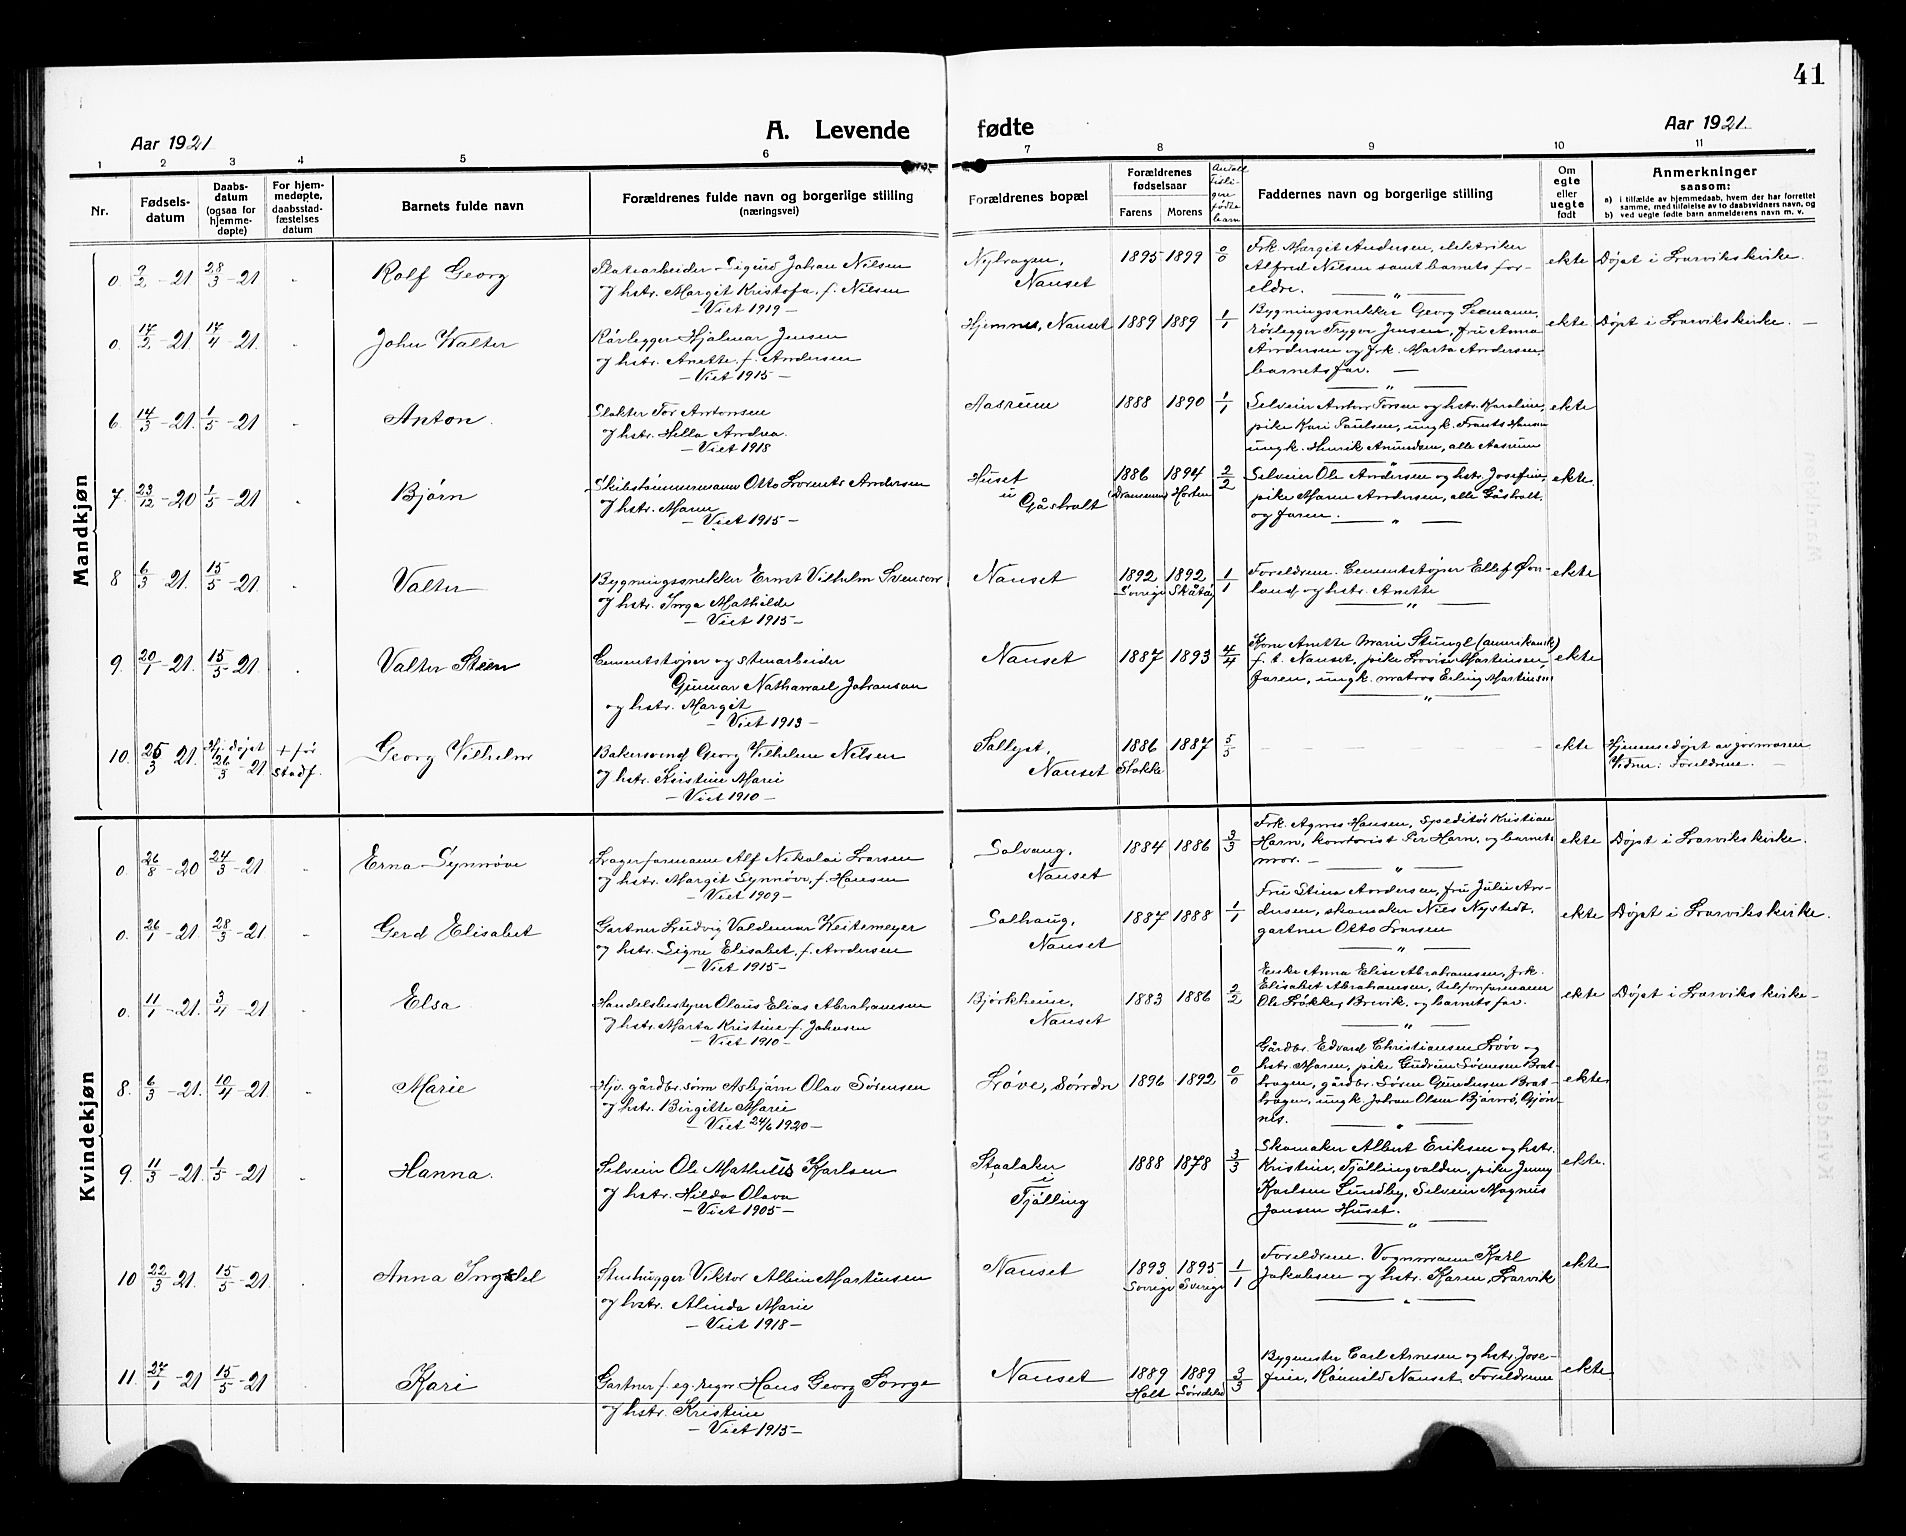 41
Aar 1921
A. Levende fødte
Aar 1921.
1 2 3 4 5 6 7 8 9 10 11
Nr.
Fødsels-
datum
Daabs-
datum
(ogsaa for
hjemme-
døpte)
For hjem-
medøpte,
daabsstad-
fæstelses
datum
Barnets fulde navn
Forældrenes fulde navn og borgerlige stilling
(næringsvei)
Forældrenes bopæl
Forældrenes
fødselsaar
Farens Morens
Antall
tidli-
gere
fødte
barn
Faddernes navn og borgerlige stilling
Om
egte
eller
uegte
født
Anmerkninger
saasom:
a) i tilfælde av hjemmedaab, hvem der har forrettet
samme, med tilføielse av to daabsvidners navn, og
b) ved uegte fødte barn anmelderens navn m. v.
Mandkjøn
0. 9/2 -21 28/3 -21 Rolf Georg
Platearbeider Sigurd Johan Nilsen
og hstr. Margit Kristofa, f. Nilsen
- Viet 1919 -
Nybragen,
Nanset
1895 1899 0/0
Frk. Margit Andersen, elektriker
Alfred Nilsen samt barnets for-
eldre.
ekte Døpt i Larviks kirke.
0. 17/2 -21. 17/4 -21. John Walter
Rørlegger Hjalmar Jensen
og hstr. Anette, f. Andersen
- Viet 1915 -
Hjemnes, Nanset 1889 1889 1/1
Bygningssnekker Georg Seemann,
rørlegger Trygve Jensen, fru Anna
Andersen og frk. Marta Andersen,
barnets far.
ekte Døpt i Larviks kirke.
6. 14/3 -21. 1/5 -21 Anton.
Slakter Tor Antonsen
og hstr. Hella Andrea.
- Viet 1918
Aasrum 1888 1890 1/1
Selveier Anton Torsen og hstr. Karoline,
pike Kari Paulsen, ungk. Frants Hansen
ungk. Henrik Amundsen, alle Aasrum
ekte
7. 23/12 -20 1/5 -21 Bjørn
Skibstømmermann Otto Lorents Andersen
og hstr. Maren
- Viet 1915 -
Huset
i
Gåsholt
1886 1894 2/2
Drammen Horten
Selveier Ole Andersen og hstr. Josefine,
pike Maren Andersen, alle Gåsholt.
og faren.
ekte.
8 6/3 -21. 15/5 -21. Valter
Bygningssnekker Ernst Vilhelm Svenson
og hstr. Inga Mathilde
- Viet 1915 -
Nanset 1892 1892 1/1
Sverige Skåtøy
Foreldrene. Cementstøper Ellef Øv-
land og hstr. Anette
ekte
9. 20/1 -21. 15/5 -21. Valter Steen
Cementstøper og stenarbeider
Gunnar Nathanael Johanson
og hstr. Margit
- Viet 1913 -
Nanset 1887 1893 4/4
Kone Anette Marie Stengl (amerikansk)
f. t. Nanset, pike Lovise Martinsen,
faren, ungk. matros Erling Martinsen
ekte
10. 25/3 21. Hj. døpt
26/3 -21
+ før
stadf.
Georg Vilhelm
Bakersvend Georg Vilhelm Nilsen
og hstr. Kristine Marie
- Viet 1910 -
Sollyst,
Nanset
1886 1887 5/5
Stokke
ekte
Hjemmedøpt av jormoren
Vidner: Foreldrene.
Kvindekjøn
0. 26/8 -20 24/3 -21. Erna Synnøve
Lagerformann Alf Nikolai Larsen
og hstr. Margit Synnøve, f. Hansen
- Viet 1909 -
Solvang,
Nanset
1884 1886 3/3
Frk. Agnes Hansen, speditør Kristian
Horn, kontorist Per Horn, og barnets
mor.
ekte Døpt i Larviks kirke.
0. 26/1 -21. 28/3 -21 Gerd Elisabet
Gartner Ludvig Valdemar Keitemeyer
og hstr. Signe Elisabet, f. Andersen
- Viet 1915 -
Solhaug,
Nanset
1887 1888 1/1
Fru Stina Andersen, fru Julie An-
dersen, skomaker Niels Nystedt,
gartner Otto Larsen
ekte Døpt i Larviks kirke.
0. 11/1 -21. 3/4 -21 Elsa
Handelsbestyrer Olaus Elias Abrahamsen
og hstr. Marta Kristine f. Johnsen
- Viet 1910 -
Bjørkheim,
Nanset
1883 1886 2/2
Enke Anna Elise Abrahamsen, frk.
Elisabet Abrahamsen, telefonformann
Ole Løkke, Brevik, og barnets far.
ekte Døpt i Larviks kirke -
8. 6/3 -21. 10/4 -21. Marie
Hjv. gårdbr. sønn Asbjørn Olav Sørensen
og hstr. Birgitte Marie
- Viet 24/6 1920 -
Løve, søndre 1896 1892 0/0
Gårdbr. Edvard Christiansen Løve og
hstr. Maren, pike Gudrun Sørensen Brat-
hagen, gårdbr. Søren Gundersen Brat-
hagen, ungk. Johan Olsen Bjørnø, Gjøn-
nes.
ekte
9. 11/3 -21. 1/5 -21 Hanna.
Selveier Ole Matheus Karlsen
og hstr. Hilda Olava
- Viet 1905 -
Staalaker
i
Tjølling
1888 1878 3/3
Skomaker Albert Eriksen og hstr.
Kristine, Tjøllingvolden, pike Jenny
Karlsen Lundby, Selveier Magnus
Jansen Huset.
ekte.
10 22/3 -21. 15/5 -21. Anna Ingxxxel
Stenhugger Viktor Albin Martinsen
og hstr. Alinda Marie
- Viet 1918 -
Nanset 1893 1895 1/1
Sverige Sverige
Foreldrene. Vognmann Karl
Jakobsen og hstr. Karen, Larvik
ekte
11. 27/1 -21 15/5 -21 Kari
Gartner f. eg. regn. Hans Georg Sorge
og hstr. Kristine
- Viet 1915 -
Nanset 1889 1889 3/3
Holt Søndeled
Bygmester Carl Arnesen og hstr. Jose-
fine, Ranvild Nanset. Foreldrene
ekte